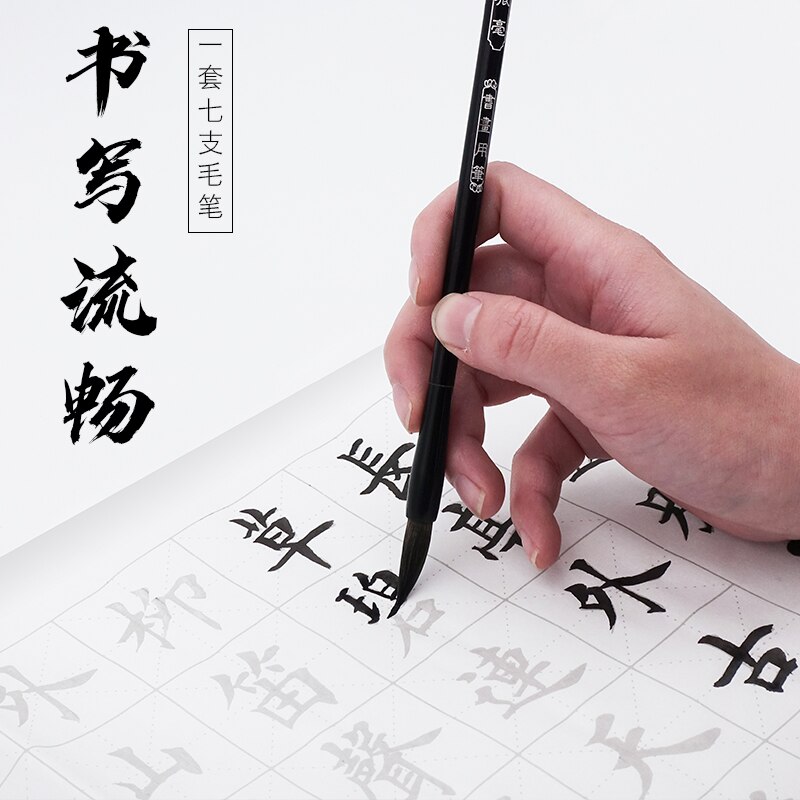 书写流畅
一套七支毛笔
毫
書畫用筆
長 外古
草碧連天
柳笛聲
外山